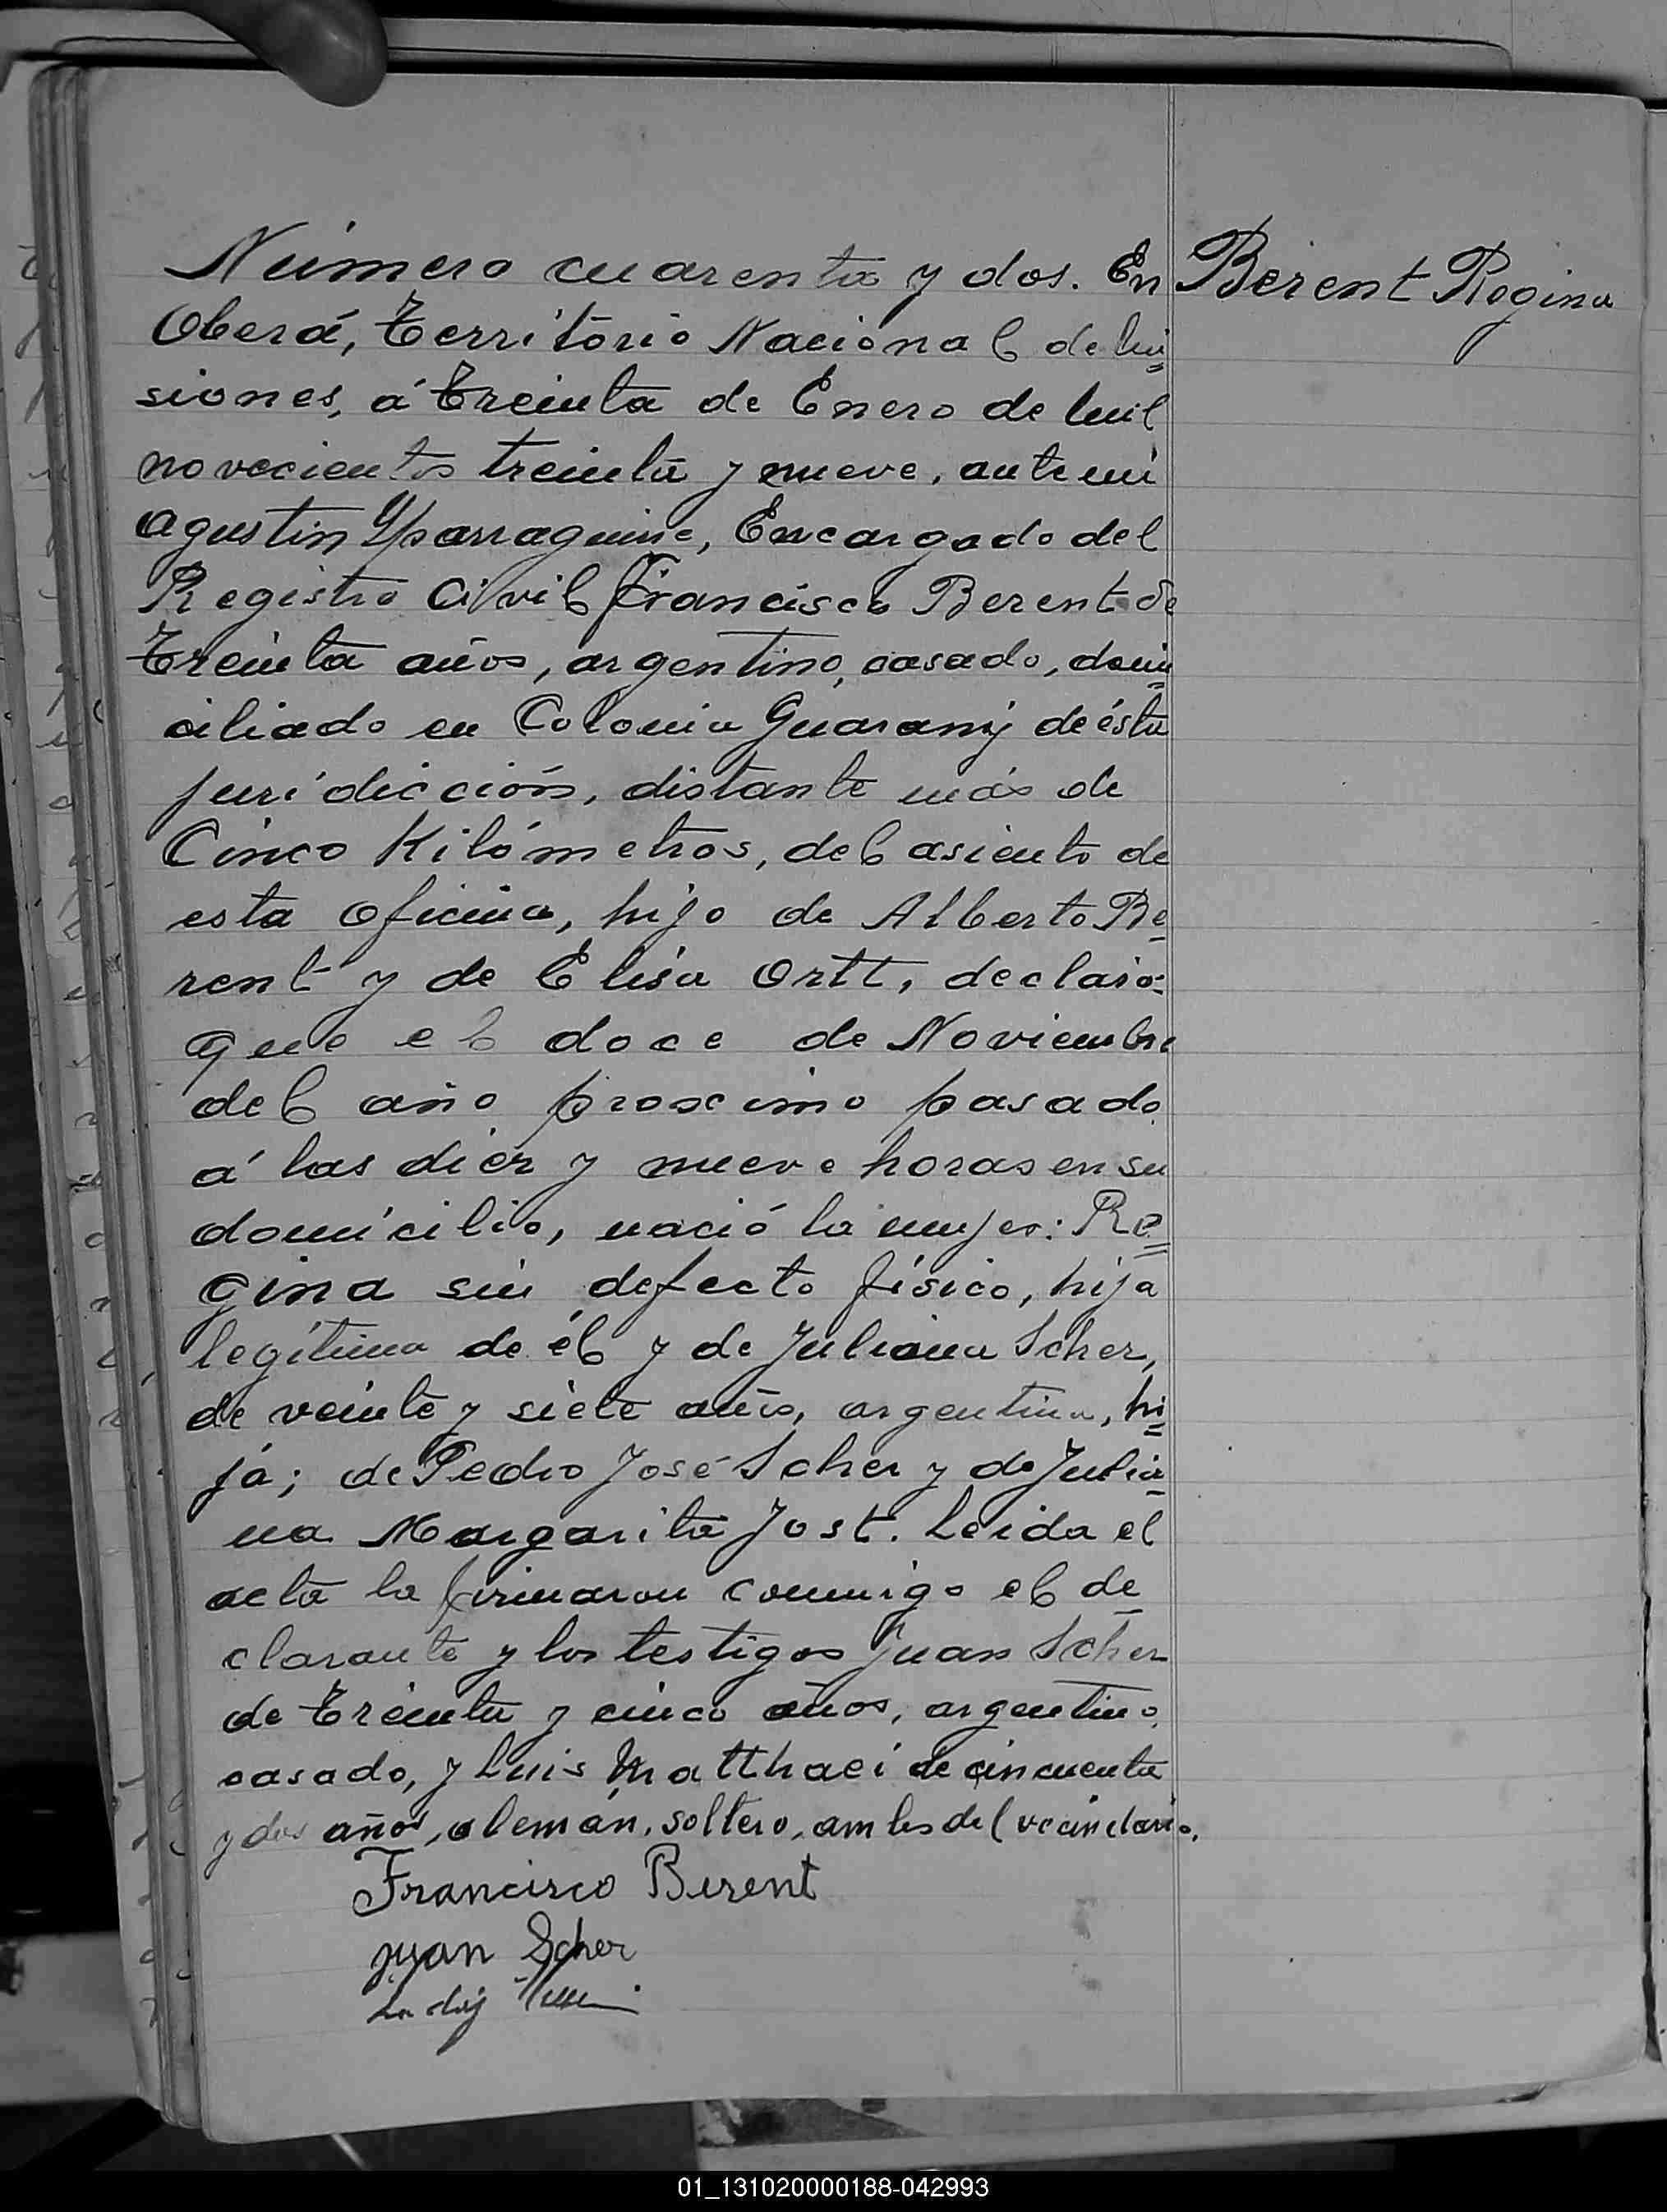 Número cuarenta y dos. En
Berent Regina
Oberá, Territorio Nacional de Mi=
siones, á treinta de Enero de mil
novecientos treinta y nueve, ante mi
Agustin Yparraguirre, Encargado del
Registro Civil Francisco Berent de
treinta años, argentino, casado, domi=
ciliado en Colonia Guarany de ésta
juridicción, distante más de
Cinco Kilómetros, del asiento de
esta oficina, hijo de Alberto Be-
rent y de Elisa Ortt, declaró:
que el doce de Noviembre
del año proximo pasado
á las diez y nueve horas en su
domicilio, nació la mujer: Re=
gina sin defecto físico, hija
legítima de él y de Juliana Scher,
de veinte y siete años, argentina, hi=
ja; de Pedro José Scher y de Julia-
na Margarita Jost. Leida el
acta la firmaron conmigo el de-
clarante y los testigos Juan Scher
de treinta y cinco años, argentino,
casado, y Luis Matthaei de cincuenta
y dos años, alemán, soltero, ambos del vecindario.
Francisco Berent
Juan Scher
01_131020000188-042993